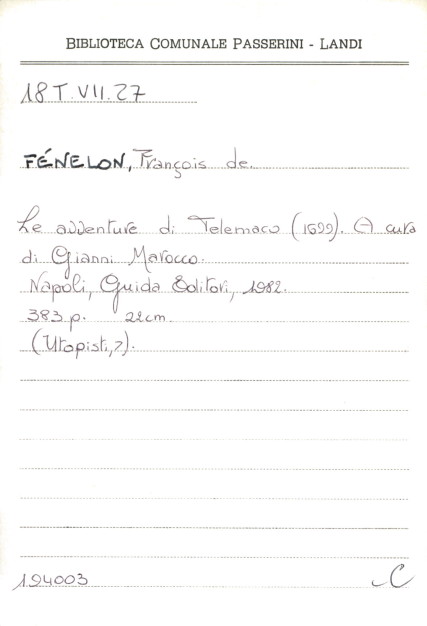 BIBLIOTECA COMUNALE PASSERINI - LANDI
18 T.VII.27
FÉNELON, François de.
Le avventure di Telemaco (1699). A cura
di Gianni Marocco.
Napoli, Guida Editori, 1982.
383 p. 22cm.
(Utopisti,7).
194003
C